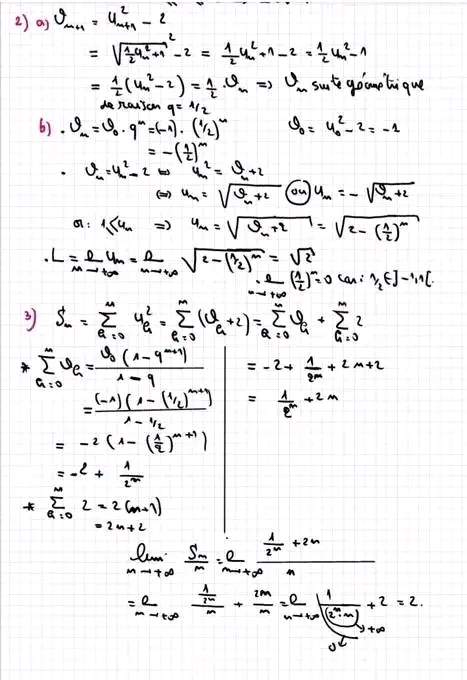 2) a) 𝒱ₙ₊₁ = u²ₙ₊₁ - 2
= √(½uₙ²+1)² - 2 = ½uₙ² + 1 - 2 = ½uₙ² - 1
= ½(uₙ² - 2) = ½ 𝒱ₙ ⇒ 𝒱ₙ suite géométrique
de raison q = 1/2
b) . 𝒱ₙ = 𝒱₀ · qⁿ = (-1) · (1/2)ⁿ 𝒱₀ = u₀² - 2 = -1
= -(1/2)ⁿ
. 𝒱ₙ = uₙ² - 2 ⇔ uₙ² = 𝒱ₙ + 2
⇔ uₙ = √(𝒱ₙ + 2) ou uₙ = -√(𝒱ₙ + 2)
or: 1 ≤ uₙ ⇒ uₙ = √(𝒱ₙ + 2) = √(2 - (1/2)ⁿ)
. L = ℓ uₙ = ℓ √(2 - (1/2)ⁿ) = √2
n→+∞ n→+∞
. ℓ (1/2)ⁿ = 0 car: 1/2 ∈ ]-1,1[.
n→+∞
3) Sₙ = Σⁿₖ₌₀ uₖ² = Σⁿₖ₌₀ (𝒱ₖ + 2) = Σⁿₖ₌₀ 𝒱ₖ + Σⁿₖ₌₀ 2
* Σⁿₖ₌₀ 𝒱ₖ = 𝒱₀(1 - qⁿ⁺¹)/(1 - q)
= (-1)(1 - (1/2)ⁿ⁺¹)/(1 - 1/2)
= -2(1 - (1/2)ⁿ⁺¹)
= -2 + 1/2ⁿ
* Σⁿₖ₌₀ 2 = 2(n+1)
= 2n+2
= -2 + 1/2ⁿ + 2n + 2
= 1/2ⁿ + 2n
lim Sₙ/n = ℓ (1/2ⁿ + 2n)/n
n→+∞ n→+∞
= ℓ (1/2ⁿ)/n + 2n/n = ℓ 1/(2ⁿ·n) + 2 = 2.
n→+∞ n→+∞
→+∞
0